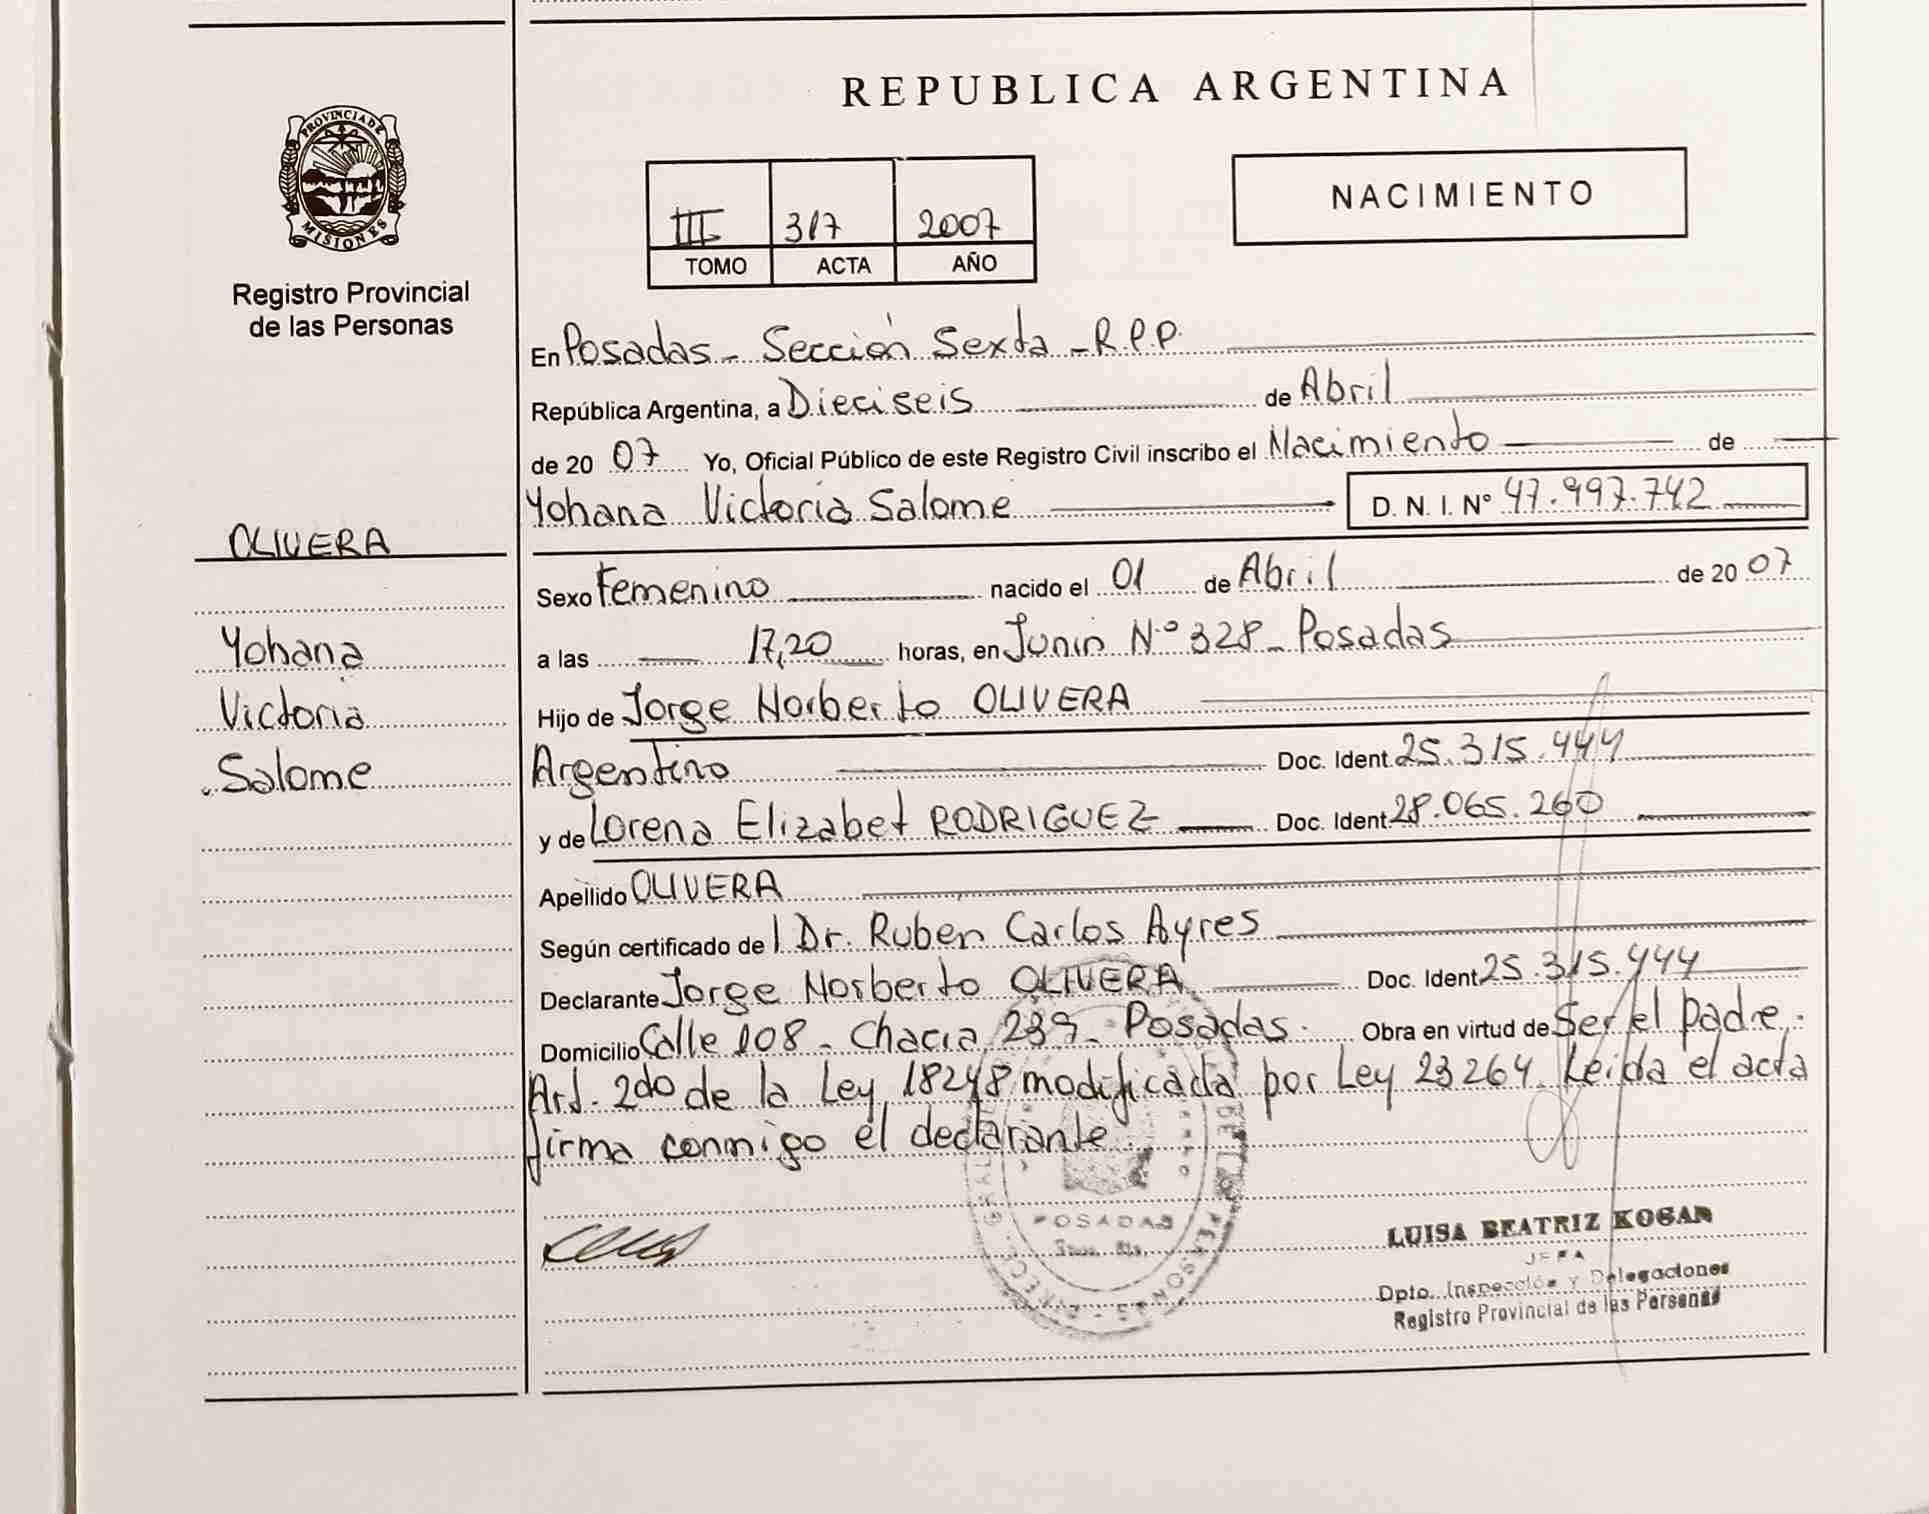 REPUBLICA ARGENTINA
PROVINCIA DE
MISIONES
Registro Provincial
de las Personas
III 317 2007
TOMO ACTA AÑO
NACIMIENTO
En Posadas - Sección Sexta - R.P.P.
República Argentina, a Dieciseis de Abril
de 20 07 Yo, Oficial Público de este Registro Civil inscribo el Nacimiento de
Yohana Victoria Salome D. N. I. N° 47.997.742
OLIVERA
Yohana
Victoria
Salome
Sexo Femenino nacido el 01 de Abril de 20 07
a las 17,20 horas, en Junin N° 328 - Posadas
Hijo de Jorge Norberto OLIVERA
Argentino Doc. Ident. 25.315.444
y de Lorena Elizabet RODRIGUEZ Doc. Ident. 28.065.260
Apellido OLIVERA
Según certificado del Dr. Ruben Carlos Ayres
Declarante Jorge Norberto OLIVERA Doc. Ident. 25.315.444
Domicilio Calle 108 - Chacra 239 - Posadas. Obra en virtud de Ser el padre.
Art. 2do de la Ley 18248 modificada por Ley 23264. Leida el acta
firma conmigo el declarante.
POSADAS
LUISA BEATRIZ KOGAN
JEFA
Dpto. Inspección y Delegaciones
Registro Provincial de las Personas